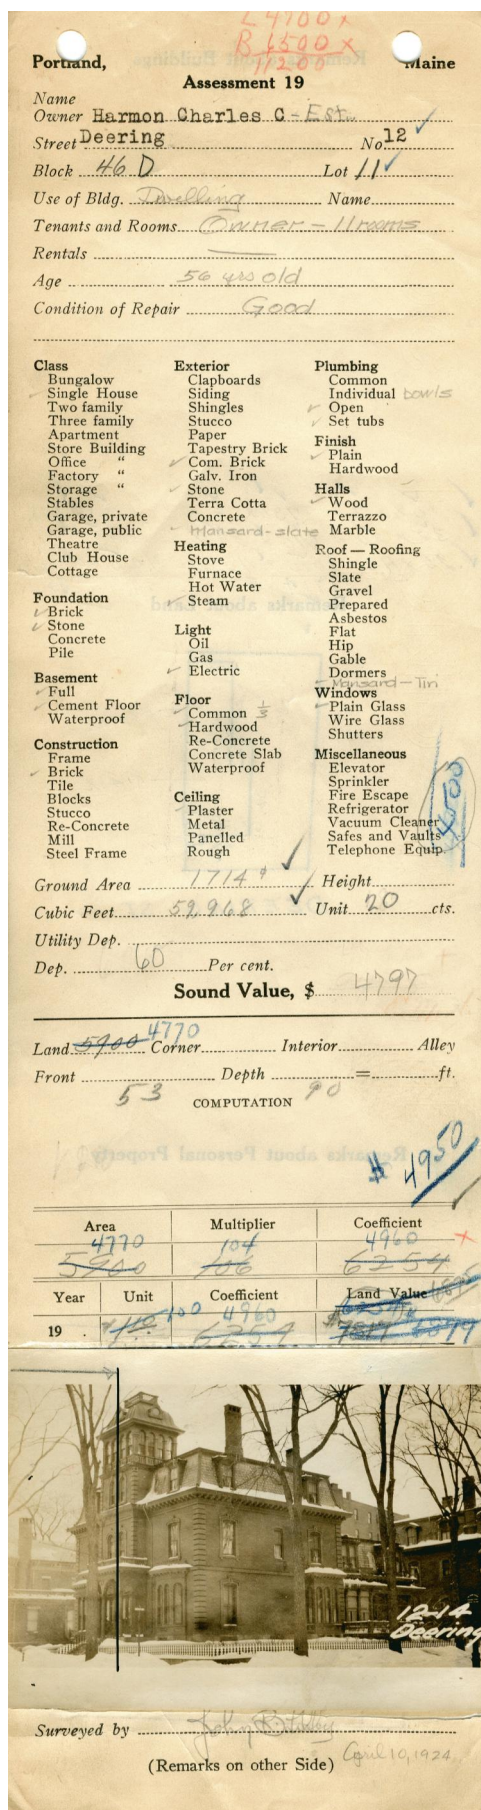 L 4700 x
B 6500 x
11200
Portland, Maine
Assessment 19
Name
Owner Harmon Charles C - Est.
Street Deering No 12
Block 46 D Lot 11
Use of Bldg. Dwelling Name
Tenants and Rooms Owner - 11 rooms
Rentals
Age 56 yrs old
Condition of Repair Good
Class
Bungalow
Single House
Two family
Three family
Apartment
Store Building
Office "
Factory "
Storage "
Stables
Garage, private
Garage, public
Theatre
Club House
Cottage
Foundation
Brick
Stone
Concrete
Pile
Basement
Full
Cement Floor
Waterproof
Construction
Frame
Brick
Tile
Blocks
Stucco
Re-Concrete
Mill
Steel Frame
Exterior
Clapboards
Siding
Shingles
Stucco
Paper
Tapestry Brick
Com. Brick
Galv. Iron
Stone
Terra Cotta
Concrete
Mansard-slate
Heating
Stove
Furnace
Hot Water
Steam
Light
Oil
Gas
Electric
Floor
Common 1/3
Hardwood
Re-Concrete
Concrete Slab
Waterproof
Ceiling
Plaster
Metal
Panelled
Rough
Plumbing
Common
Individual bowls
Open
Set tubs
Finish
Plain
Hardwood
Halls
Wood
Terrazzo
Marble
Roof — Roofing
Shingle
Slate
Gravel
Prepared
Asbestos
Flat
Hip
Gable
Dormers
Mansard-Tin
Windows
Plain Glass
Wire Glass
Shutters
Miscellaneous
Elevator
Sprinkler
Fire Escape
Refrigerator
Vacuum Cleaner
Safes and Vaults
Telephone Equip.
4500
Ground Area 1714 Height
Cubic Feet 59,968 Unit 20 cts.
Utility Dep.
Dep. 60 Per cent.
Sound Value, $ 4797
4770
Land 5900 Corner Interior Alley
Front Depth = ft.
53 90
COMPUTATION
$ 4950
Area Multiplier Coefficient
4770 104 4960
5900 106 6254
Year Unit Coefficient Land Value
100 4960
19 . 110 6254
12-14
Deering
Surveyed by
April 10, 1924
(Remarks on other Side)